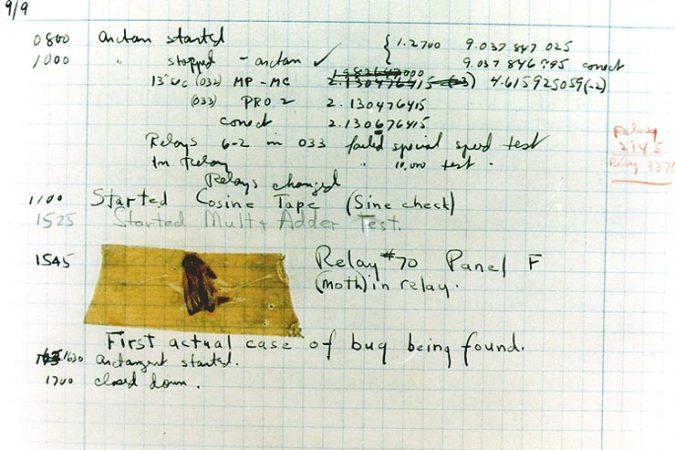 9/9
0800 arctan started { 1.2700 9.037 847 025
1000 " stopped - arctan ✓ 9.037 846 995 correct
13"sec (032) MP - MC 2.130476415 4.615925059(-2)
(033) PRO 2 2.130476415
correct 2.130676415
Relays 6-2 in 033 failed special speed test
In Relay " 10,000 test .
Relay
2145
Relay 3370
Relays changed
1100 Started Cosine Tape (Sine check)
1525 Started Mult+ Adder Test.
1545 Relay #70 Panel F
(moth) in relay.
First actual case of bug being found.
1630 arctangent started.
1700 closed down.